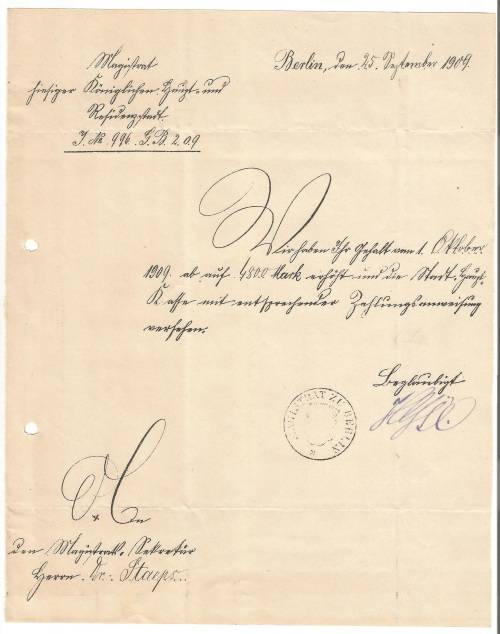 Magistrat
hiesiger Königlichen Haupt- und
Residenzstadt.
J. No 996. G.B. 2. 09
Berlin, den 25. September 1909.
Wir haben Ihr Gehalt vom 1. Oktober
1909. ab auf 4800 Mark erhöht und die Stadt-Haupt-
Kasse mit entsprechender Zahlungsanweisung
versehen.
Beglaubigt
MAGISTRAT ZU BERLIN
An
den Magistrats-Sekretär
Herrn Dr. Staeps.